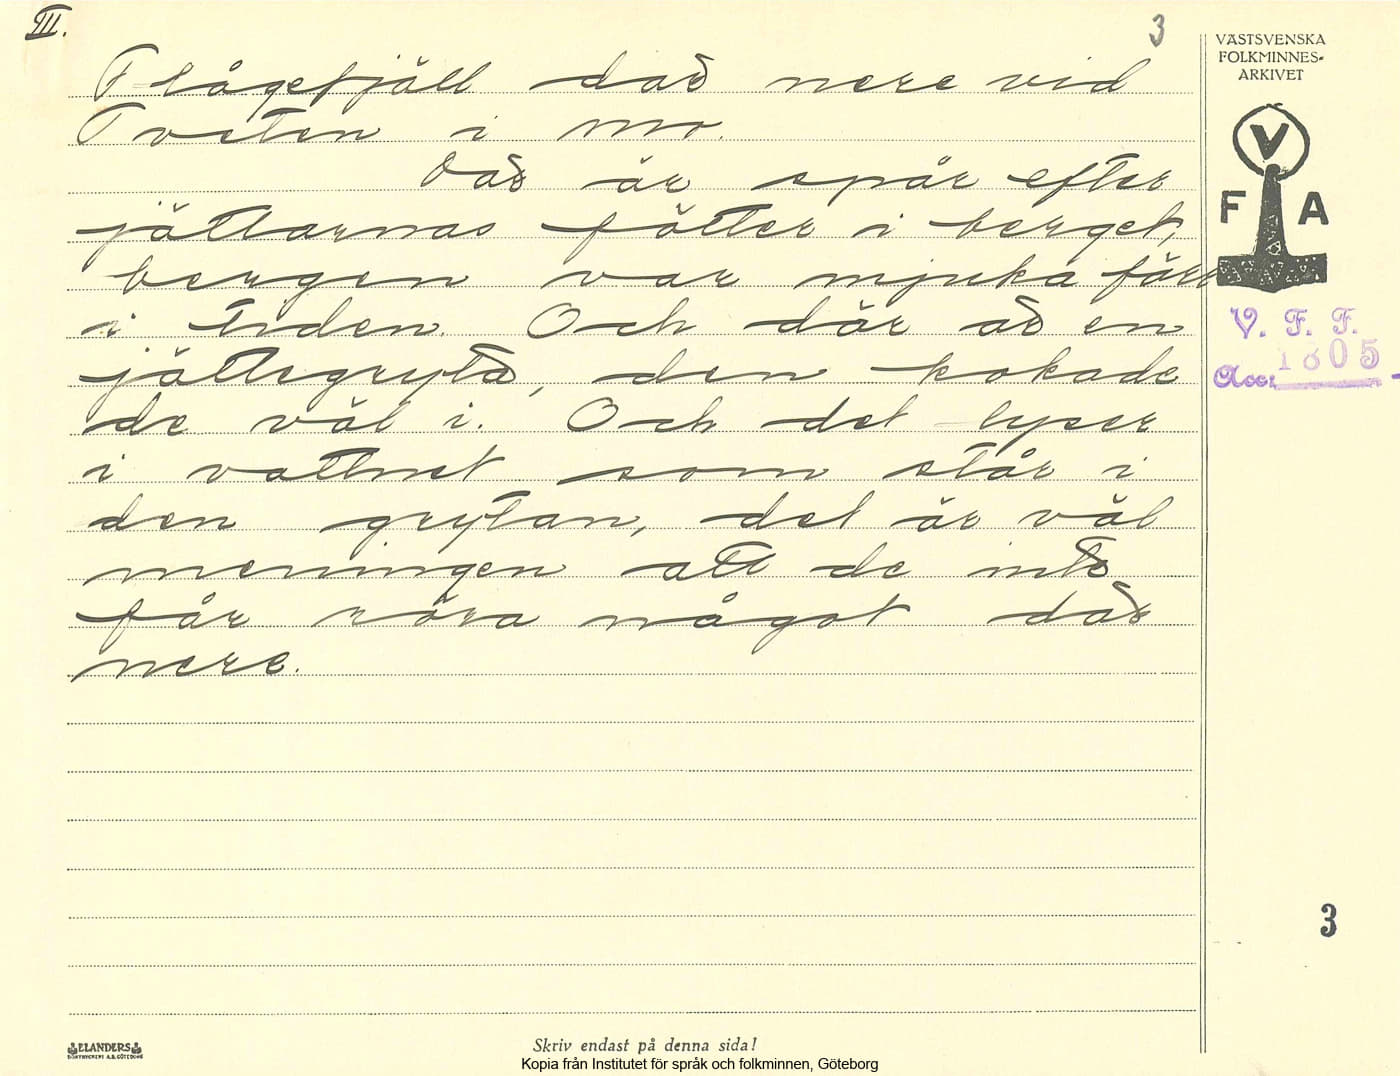 III.
3
Flågefjäll där nere vid
Tveten i Mo.
Där är spår efter
jättarnas fötter i berget,
bergen var mjuka förr
i tiden. Och där är en
jättegryta, den kokade
de väl i. Och det lyser
i vattnet som står i
den grytan, det är väl
meningen att de inte
får röra något där
nere.
VÄSTSVENSKA
FOLKMINNES-
ARKIVET
V
F A
V. F. F.
Acc: 1805
3
ELANDERS
BOKTRYCKERI A.B. GÖTEBORG
Skriv endast på denna sida!
Kopia från Institutet för språk och folkminnen, Göteborg